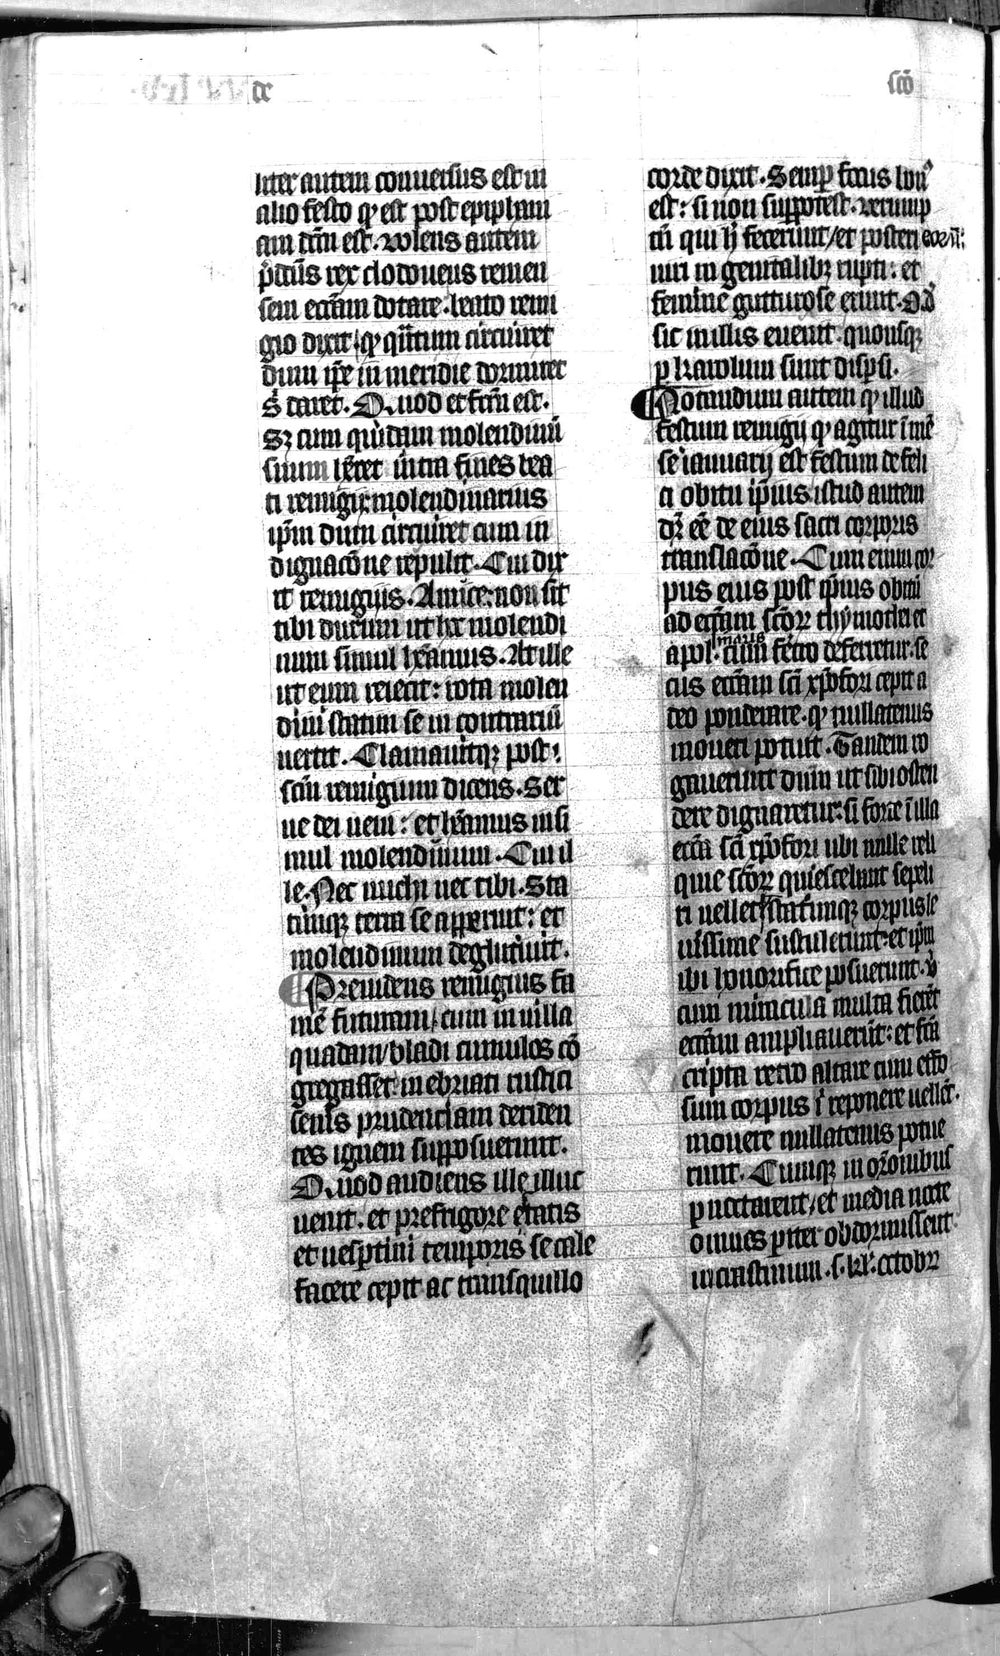 de
sc̄o
liter autem conuersus est in
alio festo qͥ est post epiphani
am dc̄m est. Volens autem
p̄dcūs rex clodoueus remen
sem ecc̄am dotare: beato remi
gio dixit / qͥ qn̄tum circuiret
dum ip̄e in meridie dormiret
s̄ daret. Quod et fc̄m est.
Sꝫ cum quidam molendinū
suum hr̄et intra fines bea
ti remigij: molendinarius
ip̄m dum circuiret cum in
dignac̄one repulit. Cui dix
it remigius. Amice: non sit
tibi durum ut hoc molendi
num simul hēamus. At ille
ut eum reiecit: rota molen
dini statim se in contrariū
uertit. Clamauitqꝫ post:
sc̄m remigium dicens. Ser
ue dei ueni: et hēamus insi
mul molendinum. Cui il
le. Nec michi nec tibi. Sta
timqꝫ terra se apperuit: et
molendinum deglutiuit.
Preuidens remigius fa
mē futuram / cum in uilla
quadam / bladi cumulos cō
gregasset: inebriati rustici
senis prudenciam deriden
tes ignem supposuerunt.
Quod audiens ille illuc
uenit. et pre frigore etatis
et uesꝑtini temporis se cale
facere cepit ac tranquillo
corde dixit. Semꝑ focus bonꝰ
est: si non suppotest. Verump
tn̄ qui hͨ fecerunt / et posteri eoꝝ:
uiri in genitalibꝫ rupti: et
femine gutturose erunt. Qd̓
sic in illis euenit. quousqꝫ
ꝑ karolum sunt disꝑsi.
Notandum autem qͥ illud
festum remigij qͥ agitur ī mē
se ianuarij est festum de feli
ci obitu ip̄ius. istud autem
dr̄ eē de eius sacri corporis
translac̄one. Cum enim cor
pus eius post ip̄ius obitū
ad ecc̄am sc̄oꝝ thymothei et
maris
apol. cum fer̄tro deferretur. se
cus ecc̄am sc̄i xp̄ofori cepit a
deo ponderare. qͥ nullatenus
moueri potuit. Tandem ro
gauerunt dn̄m ut sibi osten
dere dignaretur: si forte ī illa
ecc̄a sc̄i xp̄ofori ubi nulle reli
quie sc̄oꝝ quiescebant sepeli
ri uellet / statimqꝫ corpus le
uissime sustulerunt: et ip̄m
ibi honorifice posuerunt. Vbi
cum miracula multa fierēt
ecc̄am ampliauerūt: et fc̄a
cripta retro altare cum effo
sum corpus ī reponere uellēt.
mouere nullatenus potue
runt. Cumqꝫ in or̄onibus
ꝑnoctarent / et media nocte
omnes ꝑiter obdormissent.
in crastinum. s. kl̓. octobꝝ